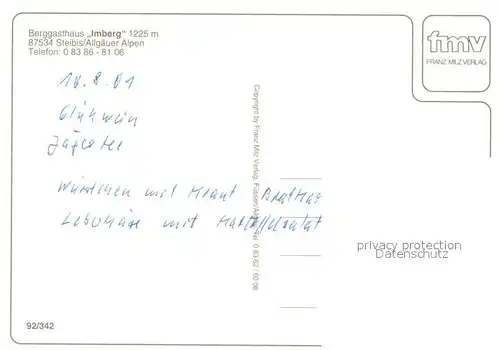 Berggasthaus „Imberg" 1225 m
87534 Steibis/Allgäuer Alpen
Telefon: 0 83 86 - 81 06
fmv
FRANZ MILZ VERLAG
10.8.01
Glühwein
Jägertee
Würstchen mit Kraut
Leberkäse mit Kartoffelsalat
Copyright by Franz Milz Verlag, Füssen/Allgäu, Tel. 0 83 62 / 60 06
privacy protection
Datenschutz
92/342